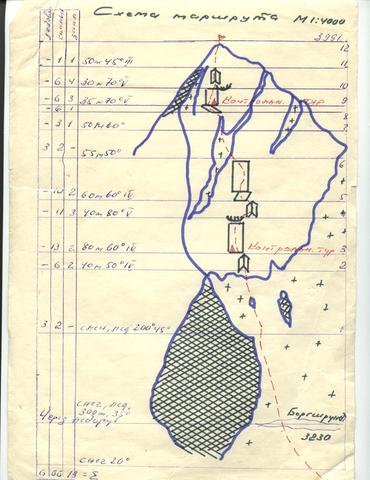 Схема маршрута М 1:4000
3991
12
- 1 1 50м 45° III
11
- 6 4 30м 70° V
10
- 6 3 35м 70° V
Контрольн. тур
9
8
- 3 1 50м 60°
7
3 2 - 55м 50°
6
5
- 10 2 60м 60° IV
4
- 11 3 40м 80° V
- 13 2 80м 60° IV
Контрольн. тур
3
- 6 2 40м 50° IV
2
3 2 - снег, лёд 200° 45°
1
снег, лёд,
300м, 35°
Бергшрунд
3230
снег 20°